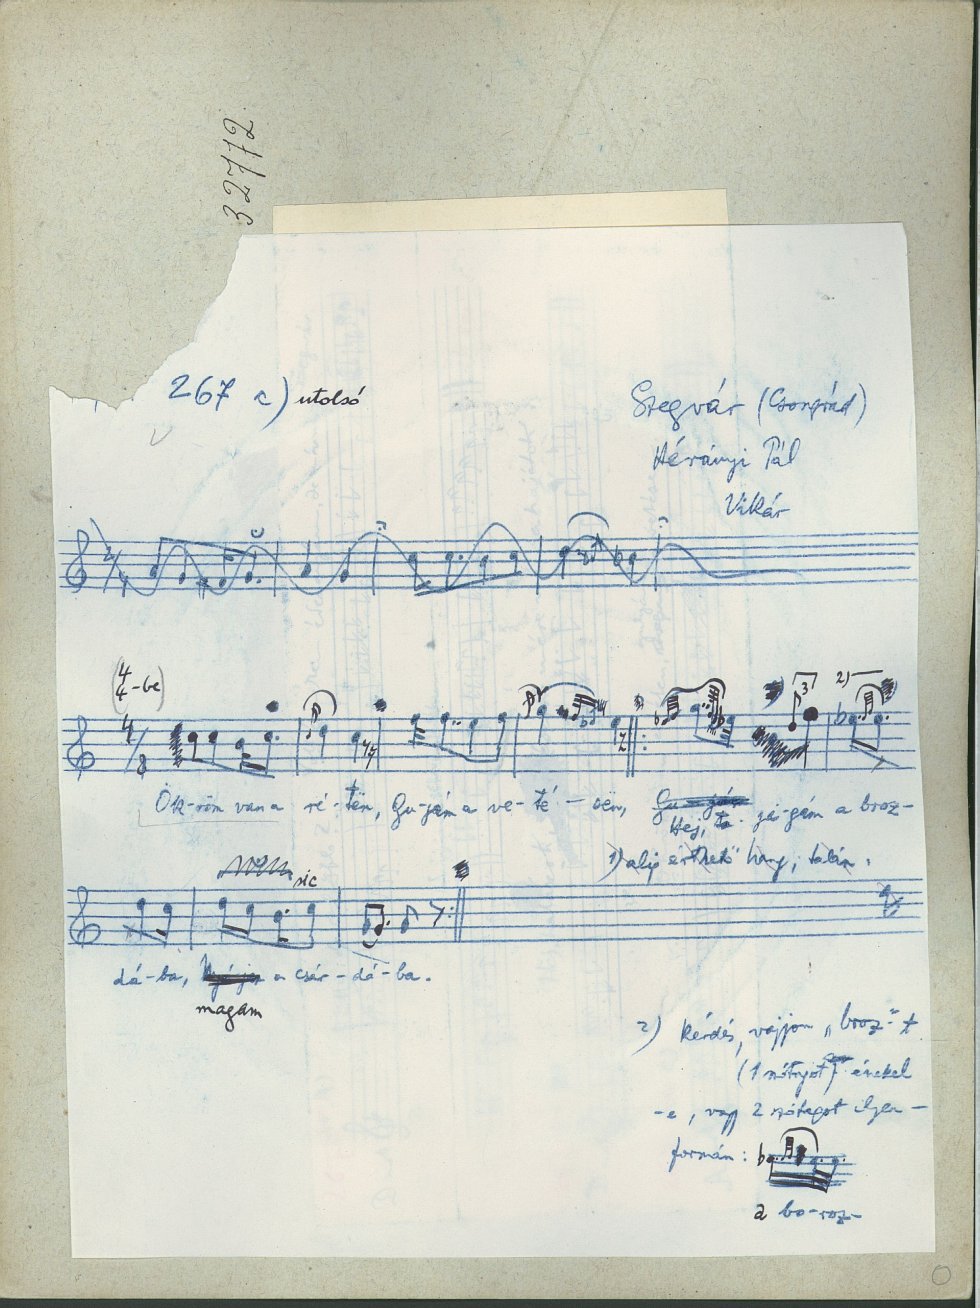 32772
267 c) utolsó
Szegvár (Csongrád)
Hérányi Pál
Vikár
2/4
(4/4-be)
4/8
3
2)
Ök-röm van a ré-tën, gu-jám a ve-té-sën,
Hej, gu-jám a broz-
1) alig érthető hang, talán:
sic
dá-ba, a csár-dá-ba.
magam
2) Kérdés, vajjon "broz"-t
(1 szótagot) énekel
-e, vagy 2 szótagot ilyen-
formán:
a bo-roz-